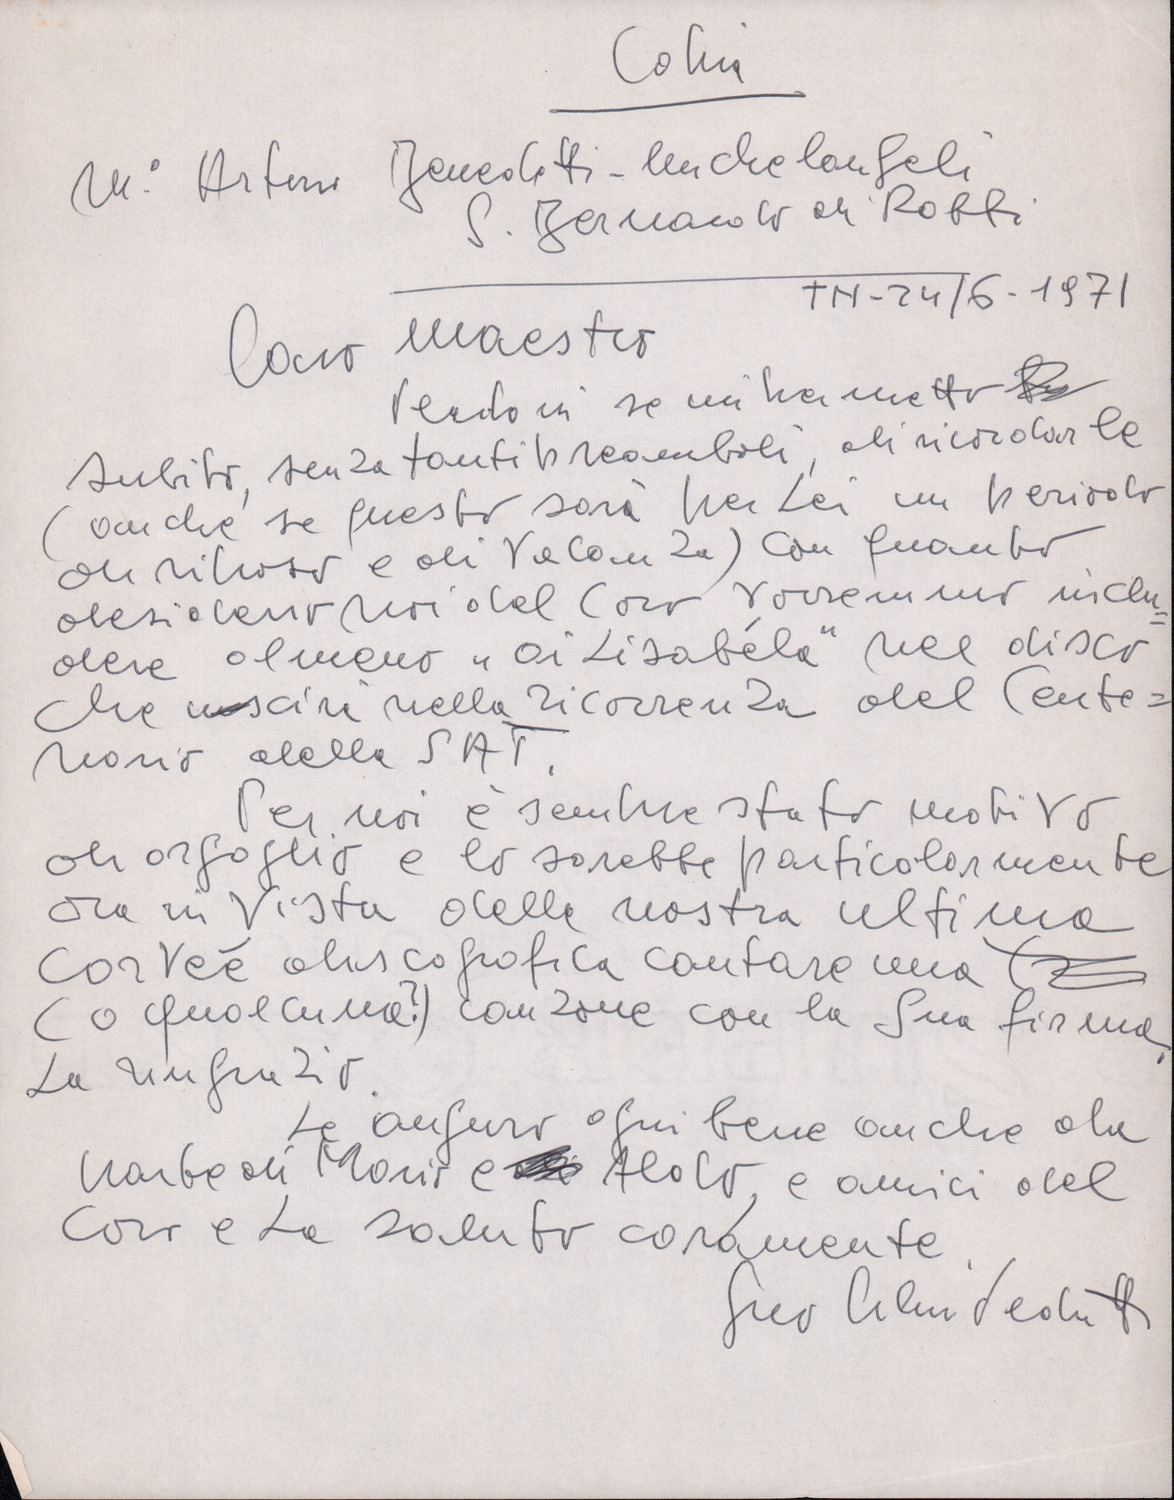 Copia
M.° Arturo Benedetti-Michelangeli
S. Bernardo di Rabbi
TN-24/6-1971
Caro Maestro
Perdoni se mi permetto
subito, senza tanti preamboli, di ricordarle
(anche se questo sarà per Lei un periodo
di riposo e di vacanza) con quanto
desiderio noi del Coro vorremmo inclu=
dere almeno "Oi Lisabéla" nel disco
che uscirà nella ricorrenza del Cente=
nario della SAT.
Per noi è sempre stato motivo
di orgoglio e lo sarebbe particolarmente
ora in vista della nostra ultima
corveé discografica cantare una
(o qualcuna?) canzone con la Sua firma.
La ringrazio.
Le auguro ogni bene anche da
parte di Mario e Aldo, e amici del
Coro e La saluto caramente.
Suo Silvio Pedrotti